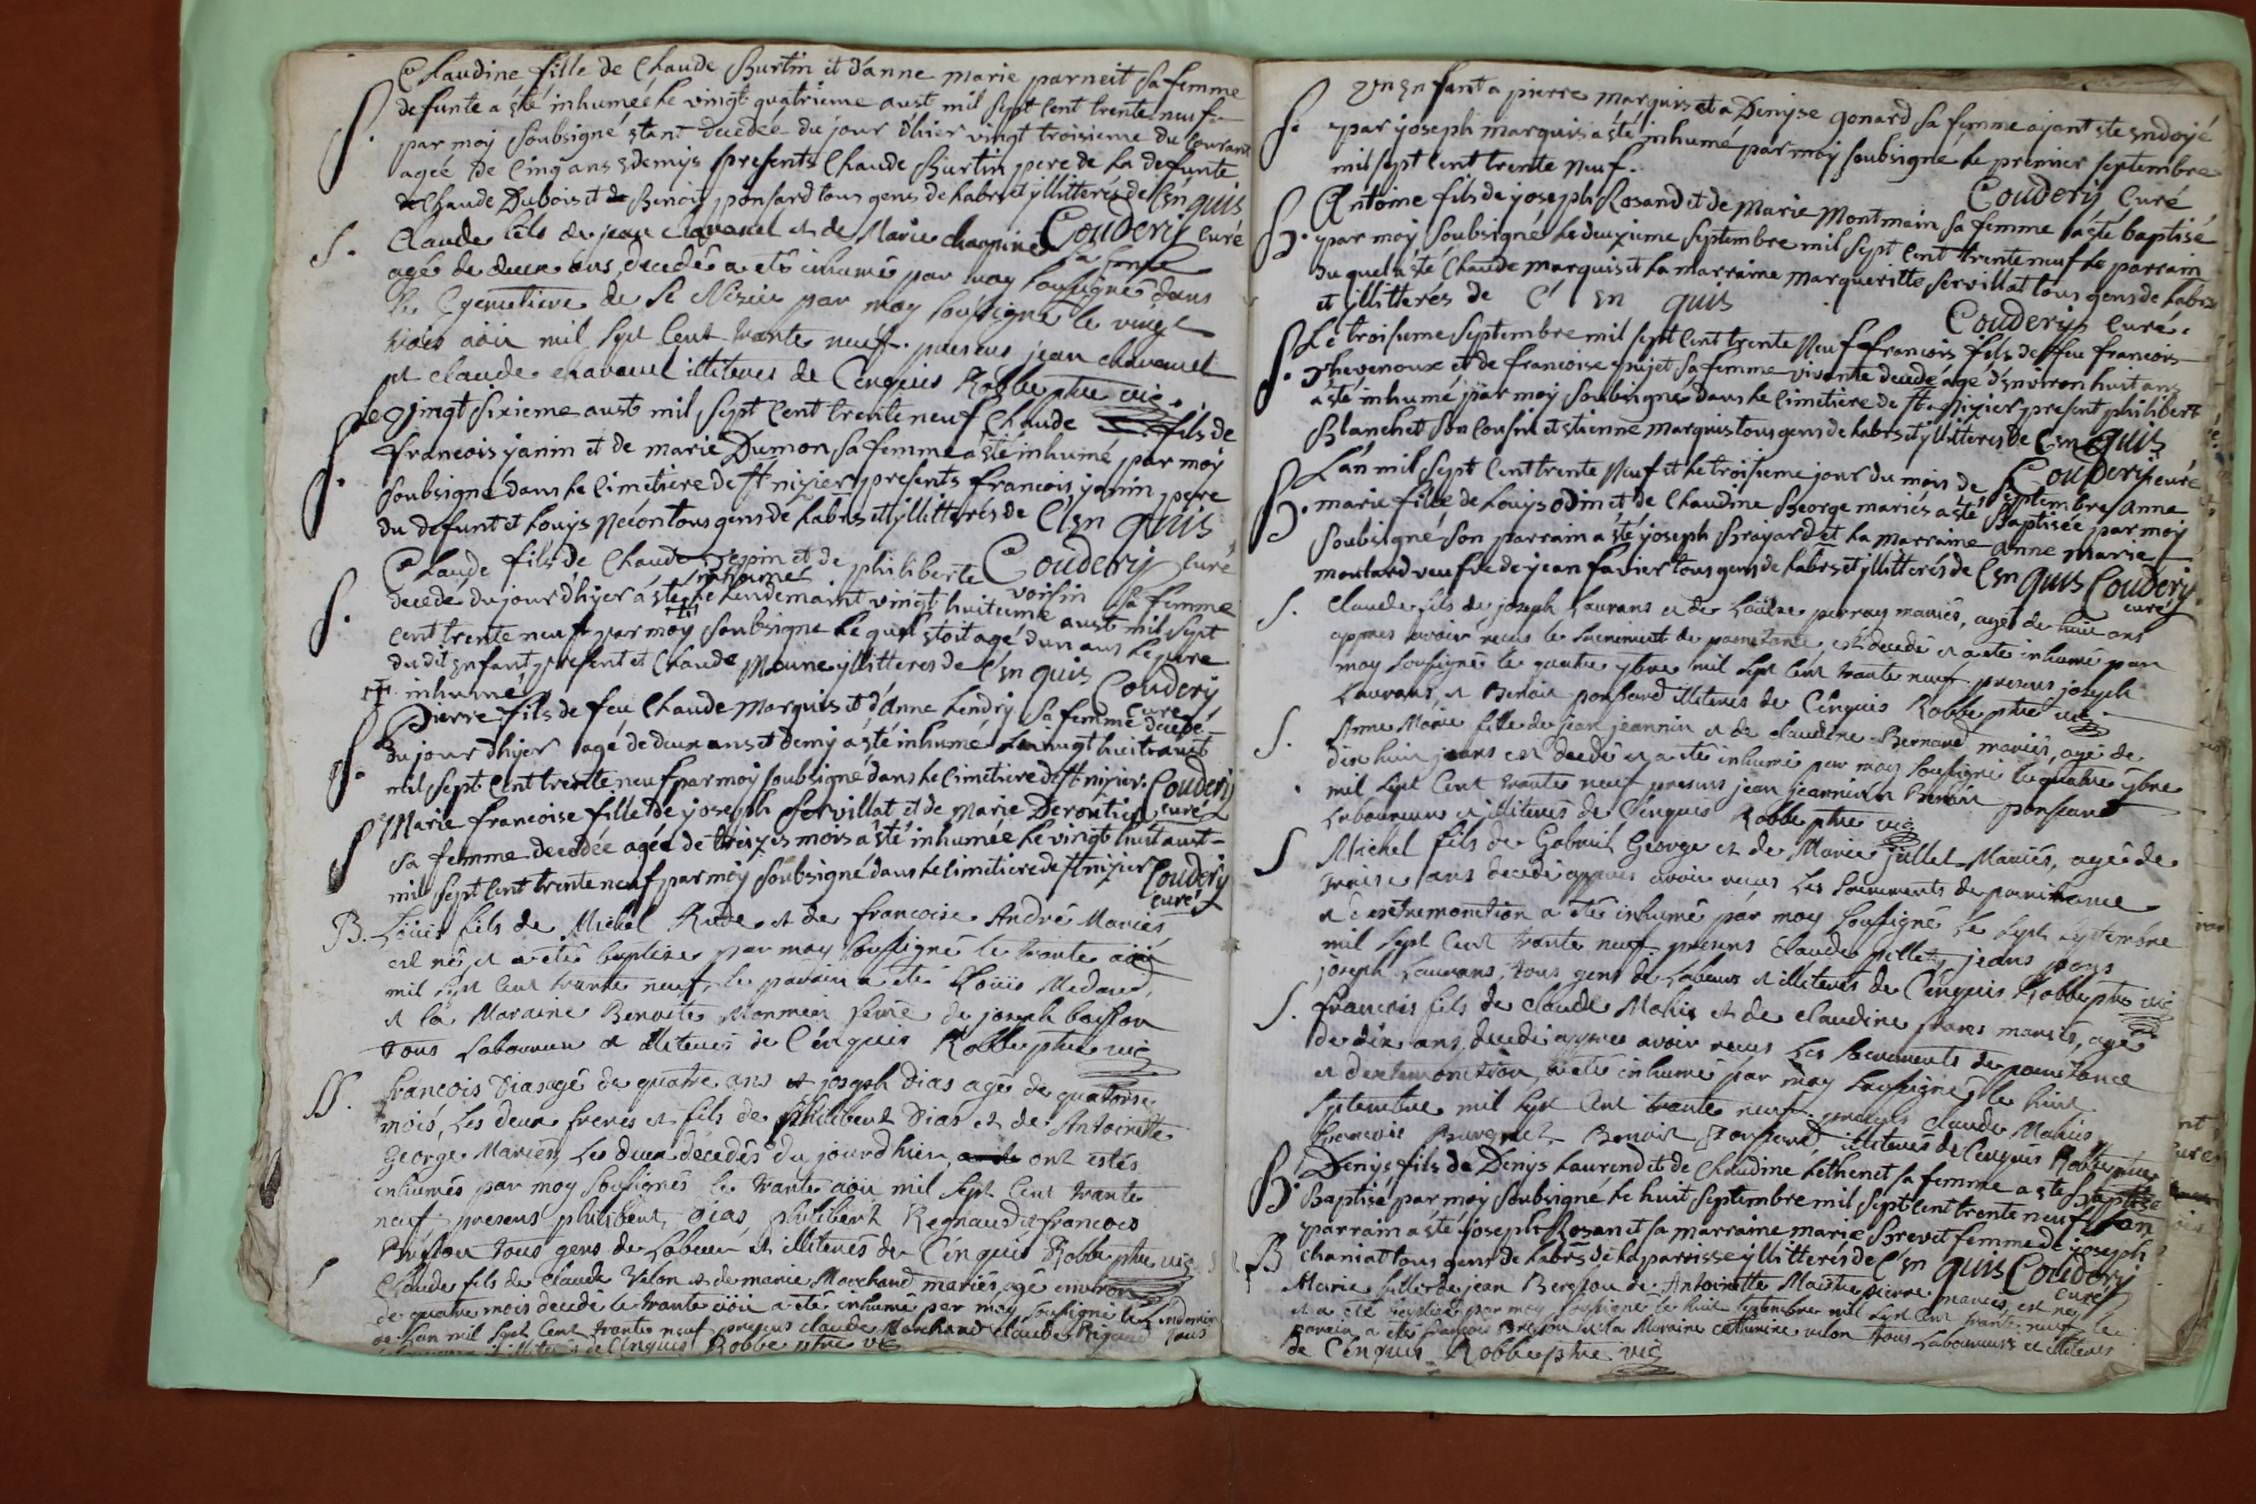 Claudine fille de Claude Burtin et d'anne marie parneit sa femme
defunte a êté inhumée le vingt quatrieme aust mil sept cent trente neuf
par moy soubsigné etant decedée du jour d'hier vingt troisieme du Courant
ageé de Cinq ans & demys presents Claude Burtin pere de la defunte
Claude Dubois et Benoit ponsard tous gens de labrs et yllitterés de Cen quis
S. Claude fils de jean Chavanel et de Marie
Couderij Curé
agé de deux ans, decedé a etê inhumé par moy soussigné dans
le Cymetiere de St Nizier par moy soussigné le vingt
aoû mil sept cent trante neuf. presens jean chavanel
et claude chavanel illiterés de Cenquis Robbe ptre vic.
S. le vingt sixieme aust mil sept Cent trente neuf Claude fils de
francois janin et de marie Dumon sa femme a êté inhumé par moy
soubsigné dans le Cimetiere de st nizier presents francois janin pere
du defunt et Louys Nécon tous gens de labrs et yllitterés de C'en quis
Couderij Curé
S. Claude fils de Claude et de philiberte voisin sa femme
decedé du jour d'hyer a êté inhumé le lendemaint vingt huitieme aust mil sept
cent trente neuf par moy soubsigné le quel etoit agé d'un ans le pere
du dit enfant present et Claude Moune yllitterés de C'en quis
inhumé Couderij Curé
S. Pierre fils de feu Claude Marquis et d'Anne hendry sa femme decedé
du jour dhyer agé de deux ans et demy a êté inhumé le vingt huit aust
mil sept cent trente neuf par moy soubsigné dans le Cimetiere de st nizier. Couderij
curé
S Marie francoise fille de joseph servillat et de Marie
sa femme decedée agée de treizes mois a êté inhumée le vingt huit aust
mil sept cent trente neuf par moy soubsigné dans le Cimetiere de st nizier Couderij
curé
B. Loüis fils de Michel Rude et de francoise André Mariés
est né et a etê baptisé par moy soussigné le trante aoû
mil sept cent trante neuf, le parrain a eté Loüis Medard,
et la Maraine Benoite Monmein feme de joseph
tous Laboureur et illiterés de Cenquis Robbe ptre vic
SS. francois Dias agé de quatre ans et joseph Dias agé de quatorse
mois, Les deux freres et fils de philibert Dias et de Antoinette
George Mariés, Les deux décedés du jourdhier, ont estés
inhumés par moy soussignés le trante aoû mil sept cent trante
neuf presens philibert Dias, philibert Regnaud et francois
tous gens de Labeur et illiterés de Cénquis Robbe ptre vic
S Claude fils de Claude Velon et de marie Marchand mariés agé environ
de quatre mois decedé le trante aoû a eté inhumé par moy soussigné le lendemain
de l'an mil sept cent trante neuf presens claude Marchand claude Rigaud tous
illiterés de Cenquis Robbe ptre vic
S. Un enfant a pierre Marquis et a Denyse gonard sa femme ayant ete endoyé
par joseph marquis a êté inhumé par moy soubsigné le premier septembre
mil sept Cent trente neuf.
Couderij Curé
B. Antoine fils de joseph Rosand et de Marie Montmain sa femme a êté baptisé
par moy soubsigné le deuxieme septembre mil sept cent trente neuf le parrain
duquel a êté Claude marquis et la marraine margueritte servillat tous gens de labrs
et yllitterés de C' en quis
Couderij Curé.
S. Le troisieme septembre mil sept cent trente Neuf francois fils de feu francois
Thevenoux et de francoise sa femme vivante decedé agé d'environ huit ans
a êté inhumé par moy soubsigné dans le Cimetiere de st nizier present philibert
Blanchet son Cousin et etienne Marquis tous gens de labrs et yllitterés de C'en quis
Couderij Curé
B. L'an mil sept Cent trente Neuf et le troisieme jour du mois de septembre Anne
marie fille de Louys odin et de Claudine George mariés a êté Baptisée par moy
soubsigné son parrain a êté joseph Brajard et la marraine anne marie
moulard veufve de jean favier tous gens de labrs et yllitterés de C'en quis Couderij
curé
S. Claude fils de joseph Laurans et de Loüise perray mariés, agé de huit ans
appres avoir recus le sacrement de pœnitance, est decedé et a eté inhumé par
moy soussigné le quatre 7bre mil sept cent trante neuf presens joseph
Laurans, et Benoit ponsard illiterés de Cenquis Robbe ptre vic
S. Anne Marie fille de jean jeannin et de claudine Bernard mariés, agé de
dix huit jours est decedé et a eté inhumé par moy soussigné le quatre 7bre
mil sept cent trante neuf presens jean jeannin et Benoit ponsard
Laboureurs et illiterés de Cenquis Robbe ptre vic
S Michel fils de Gabriel George et de Marie jullet Mariés, agé de
traise ans decedé appres avoir recus Les sacrements de pœnitance
et dextremonction a eté inhumé par moy soussigné le sept septembre
mil sept cent trante neuf presens Claude pillet, jeans
joseph Laurans, tous gens de Labeurs et illiterés de Cenquis Robbe ptre vic
S. francois fils de claude Mahis et de claudine mariés, agé
de dix ans, decedé appres avoir recus Les sacrements de pœnitance
et dextremonction, a eté inhumé par moy soussigné le huit
septembre mil sept cent trante neuf. presens claude Mahis
francois Benoit Ponsard, illiterés de Cenquis Robbe ptre
B. Denys fils de Denys Laurend et de Claudine Lethenet sa femme a êté Baptisé
Baptisé par moy soubsigné le huit septembre mil sept cent trente neuf son
parrain a êté joseph Rosan et sa marraine marie Brevet femme de joseph
chaniat tous gens de labrs de la parroisse yllitterés de C'en quis Couderij
curé
B Marie fille de jean Beresson de Antoinette Maistrepierre mariés, est né
et a eté baptisé par moy soussigné le huit septembre mil sept cent trante neuf le
parain a eté francois et la Maraine catherine velon tous Laboureurs et illiterés
de Cenquis Robbe ptre vic